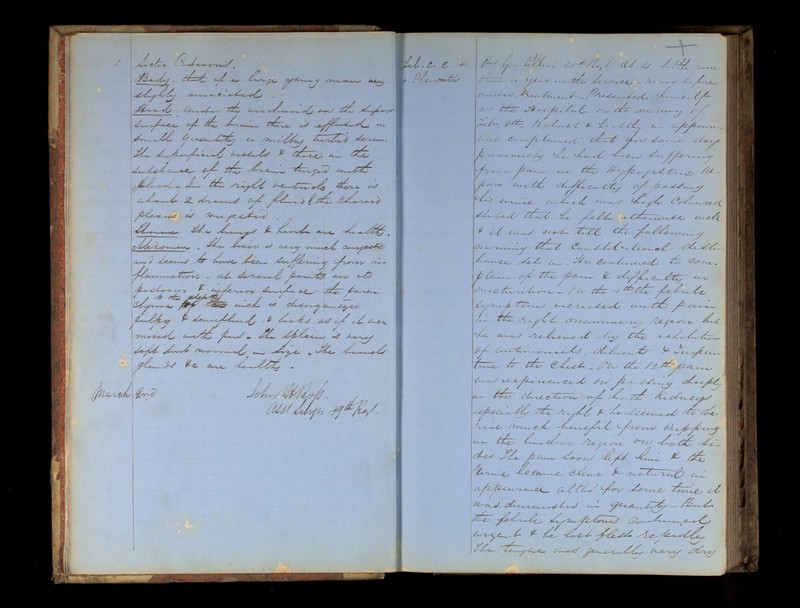 Sectio Cadaveris.
Body. that of a large young man very
slightly emaciated
Head. Under the arachnoid on the super
surface of the brain there is effused a
small quantity of milky turbid serum
The superficial vessels & those in the
substance of the brain turgid with
blood. In the right ventricle there is
about 2 drams of fluid & the choroid
plexus is congested
Thorax The lungs & heart are healthy.
Abdomen. The liver is very much congested
and seems to have been suffering from in-
flammation. at several points on its
posterior & inferior surface the paren
chyma to the depth inch is disorganized
pulpy & & looks as if it were
mixed with pus. The spleen is very
soft but normal in size. The bowels
glands &c are healthy.
March 2nd
John
Asst Surgn 29th Regt.
Feb. c. c. &
Pleuritis
29th Regt. At 21 been more
than a year in the service. never before
under treatment. Presented himself
at the Hospital on the evening of
Febr 8th, Robust & healthy in appear-
but complained that for some days
previously he had been suffering
from pain in the Hypogastric Re-
gion with difficulty of passing
his urine which was high Coloured
stated that he felt otherwise well
& it was not till the following
morning that Constitutional distur-
bance set in. He continued to com-
plain of the pain & difficulty in
micturition. On the 11th the febrile
symptoms increased with pain
in the right mammary region but
he was relieved by the exhibition
of antimonials, diluents &
to the Chest. On the 12th pain
was experienced on pressing deeply
in the direction of both Kidneys
specially the right & he seemed to de-
rive much benefit from cupping
in the lumbar region on both si-
des The pain soon left him & the
Urine became clear & natural in
appearance altho' for some time it
was diminished in quantity. But
the febrile symptoms continued
urgent & he lost flesh rapidly
The tongue was generally very dry